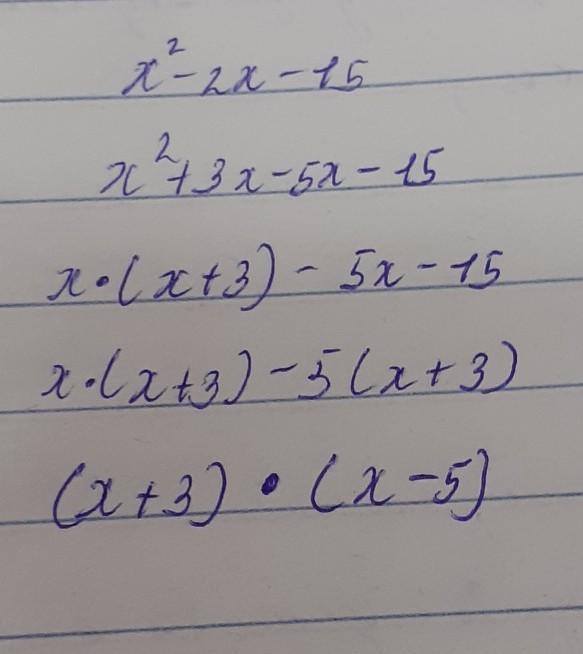 x²-2x-15
x²+3x-5x-15
x·(x+3)-5x-15
x·(x+3)-5(x+3)
(x+3)·(x-5)